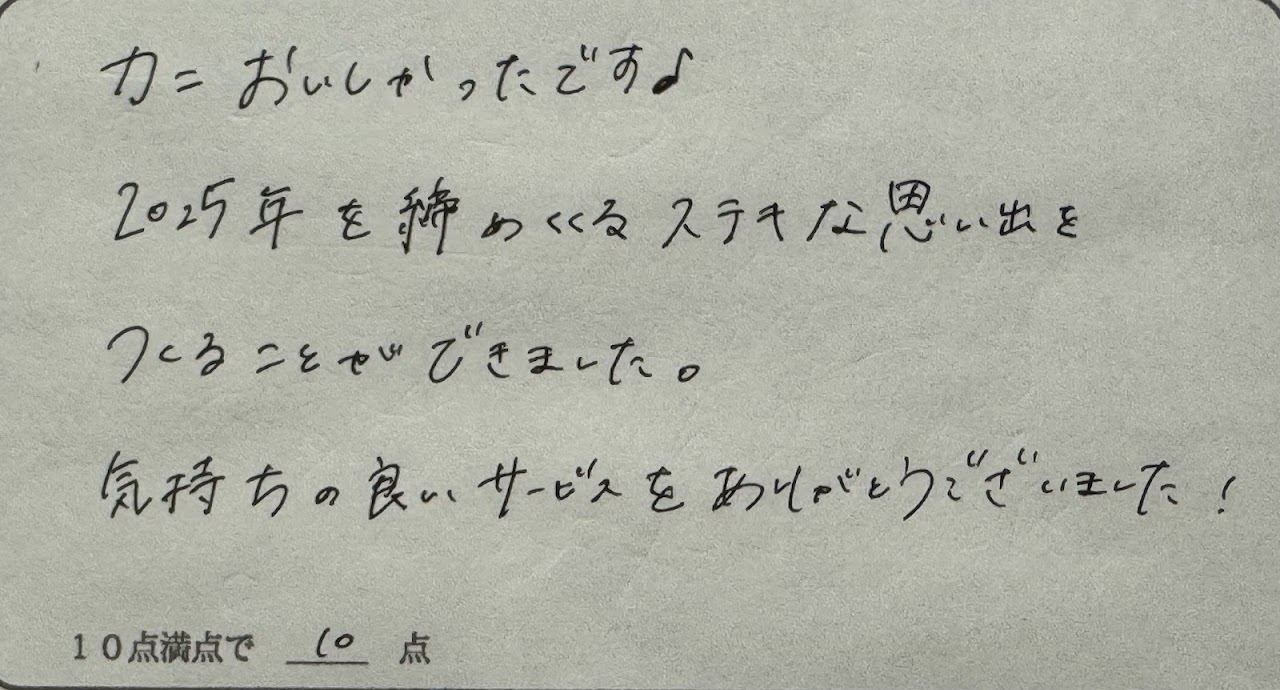 カニおいしかったです♪
2025年を締めくくるステキな思い出を
つくることができました。
気持ちの良いサービスをありがとうございました!
10点満点で 10 点